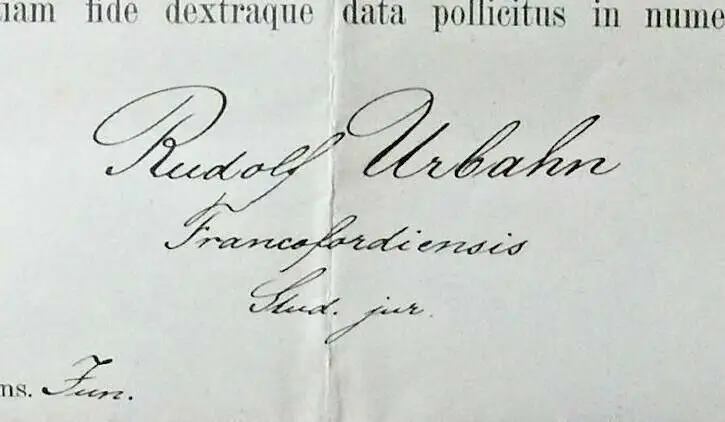 iam fide dextraque data pollicitus in nume
Rudolf Urbahn
Francofordiensis
Stud. jur.
ns. Jun.